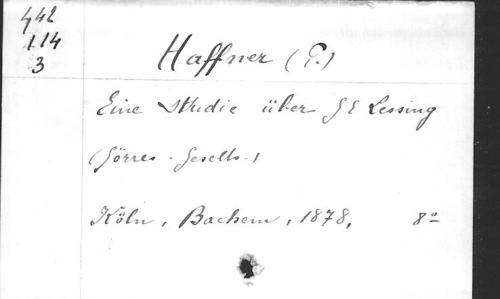 442
114
3
Haffner (P.)
Eine Studie über G E Lessing
(Görres-Gesells.)
Köln, Bachem, 1878, 8º